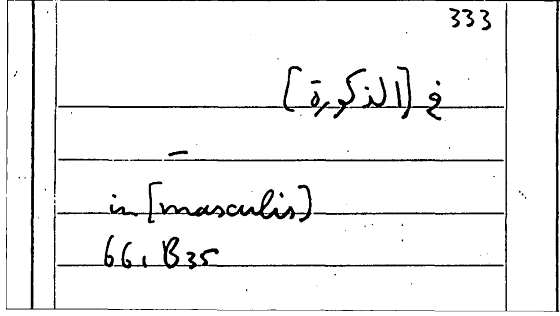 333
في [الذكورة]
–
in [masculis]
66, B35